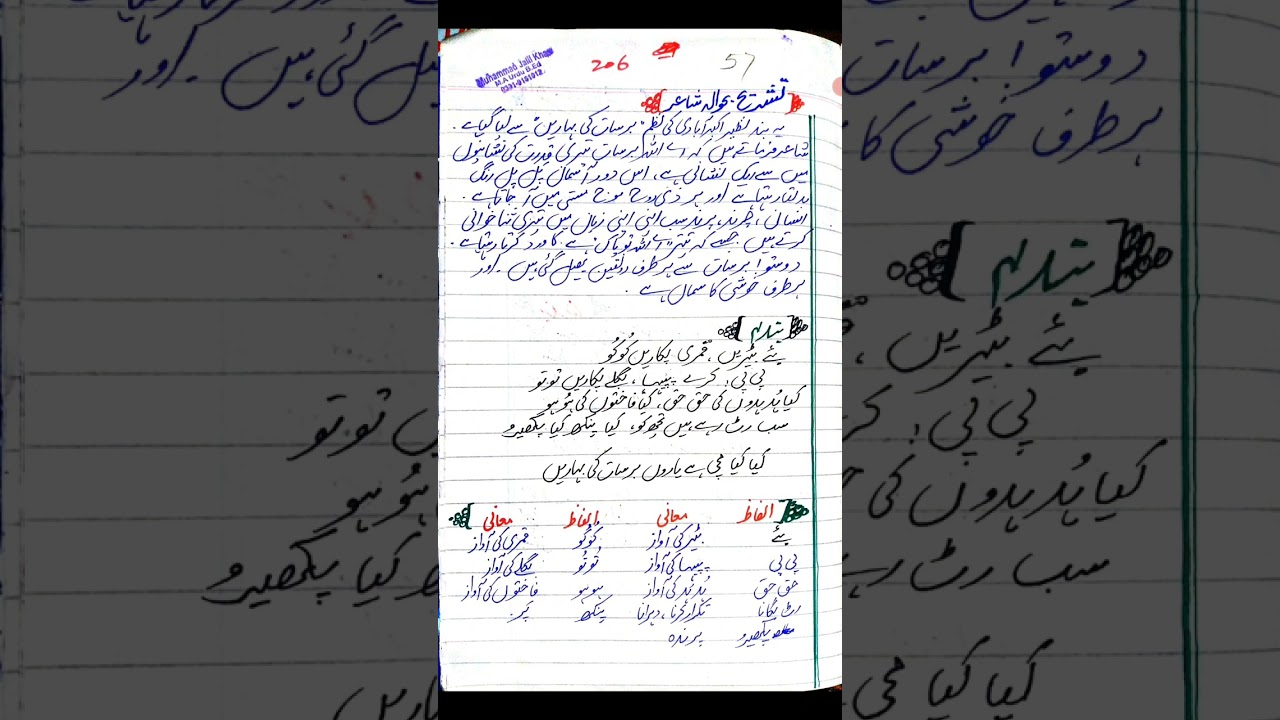 57
206
Muhammad Jalil Khan
M.A Urdu B.Ed
تشریح بحوالہ شاعر
یہ بند نظیر اکبر آبادی کی نظم "برسات کی بہاریں" سے لیا گیا ہے ۔
شاعر فرماتے ہیں کہ اے اللہ برسات تیری قدرت کی نشانیوں
میں سے ایک نشانی ہے، اس دور آسمان پل پل رنگ
بدلتا رہتا ہے اور ہر ذی روح موج مستی میں آ جاتا ہے ۔
انسان، چرند، پرند سب اپنی اپنی زبان میں تیری ثنا خوانی
کرتے ہیں جیسے کہ تیتر اے اللہ تو پاک ہے کا ورد کرتا رہتا ہے ۔
دوستو! برسات سے ہر طرف رونقیں پھیل گئی ہیں ۔ اور
ہر طرف خوشی کا سماں ہے ۔
بند ۴
بئے بٹیریں، قمری پکاریں کُوکُو
پی پی: کرے پپیہا، بگلے پکاریں تُوتُو
کیا ہُدہُدوں کی حق حق، کیا فاختوں کی ہُوہُو
سب رٹ رہے ہیں تجھ کو، کیا پنکھ کیا پکھیرو
کیا کیا مچی ہے یاروں برسات کی بہاریں
الفاظ معانی الفاظ معانی
بئے بٹیر کی آواز کُوکُو قمری کی آواز
پی پی پپیہا کی آواز تُوتُو بگلے کی آواز
حق حق ہُدہُد کی آواز ہوہو فاختوں کی آواز
رٹ لگانا تکرار کرنا، دہرانا پنکھ پر
پکھیرو پرندہ